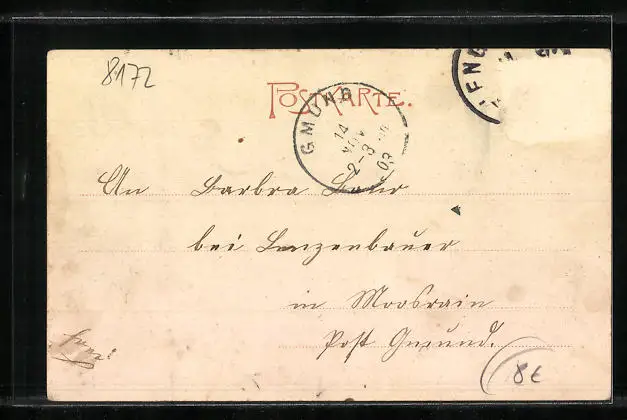 8172
POSTKARTE.
GMUND
14
NOV
2-3
03
LENG
An Barbra
bei Lenzenbauer
in Moosrain
Post Gmund.
8€